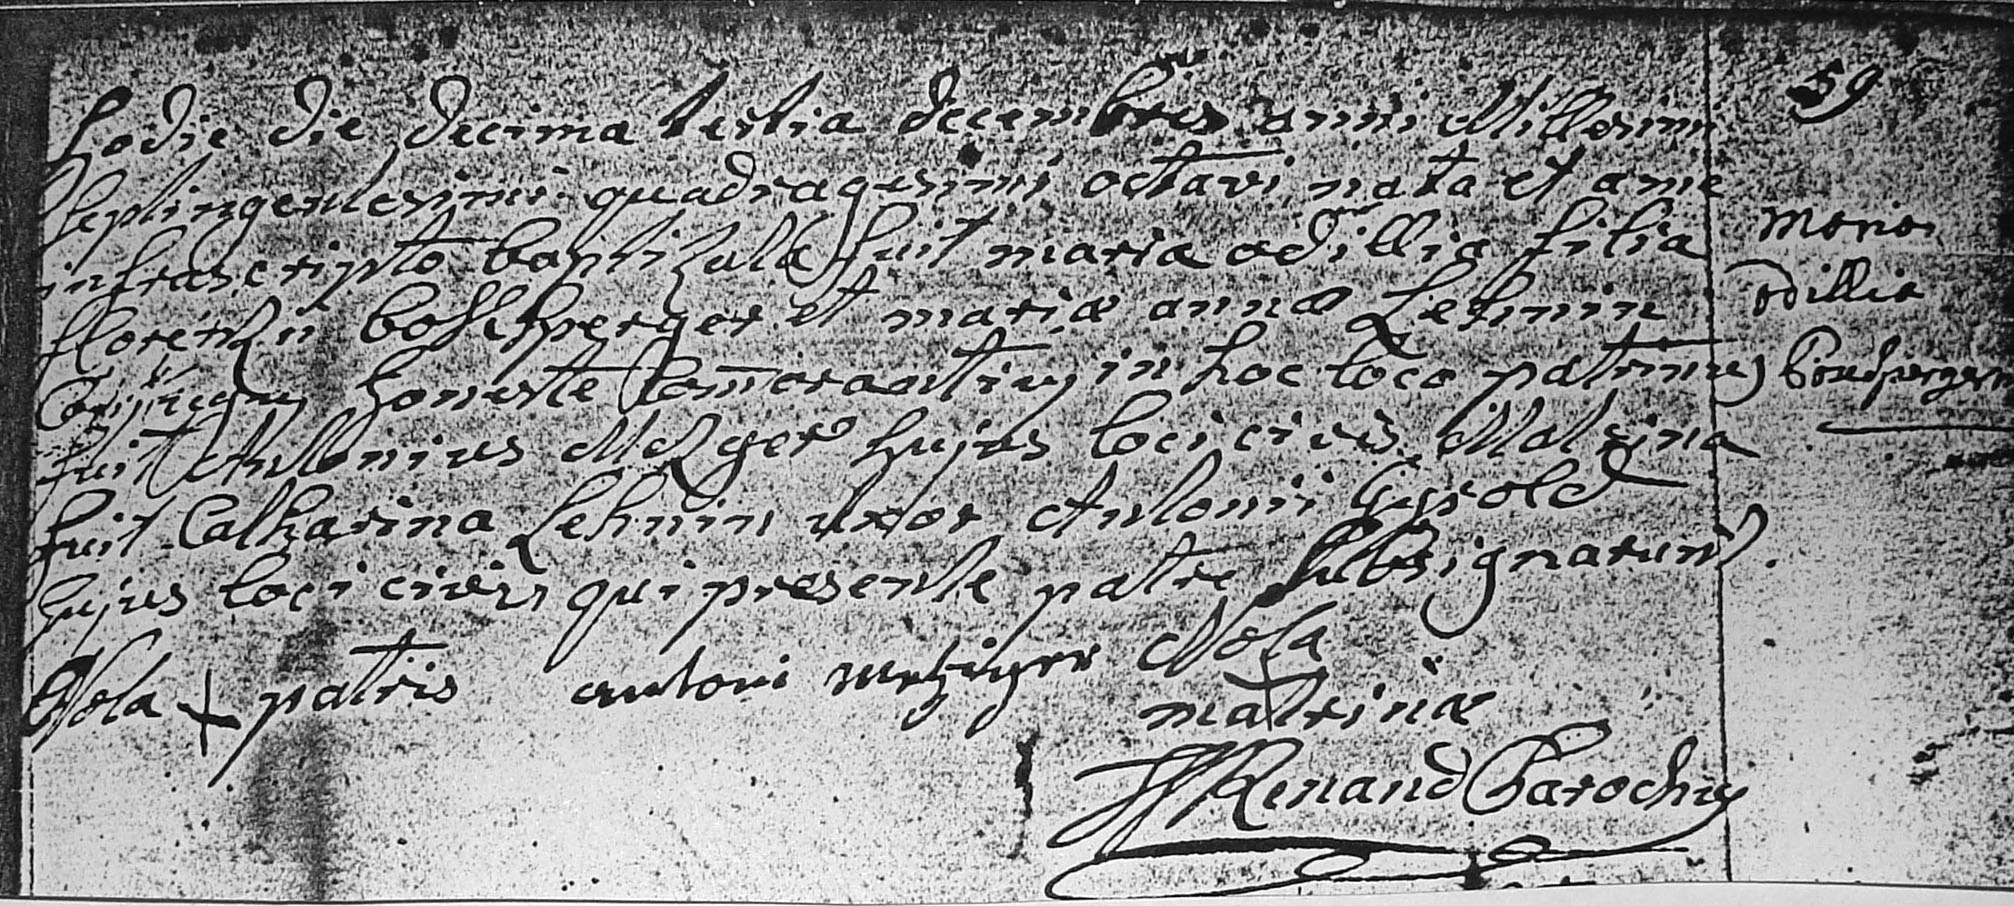 hodie die decima tertia decembris anni Millesimi
septingentesimi quadragesimi octavi nata et a me
infrascripto baptizata fuit maria odillia filia
florentzii bossesperger et mariæ annæ Lehnin
Conjugum honeste commorantium in hoc loco patrinus
fuit Antonius Metzger hujus loci civis Matrina
fuit Catharina Lehnin uxor Antonii
hujus loci civis qui presente patre subsignarunt.
Nota + patris antoni metziger Nota
matrinæ
Renaud Parochus
59
Maria
odillia